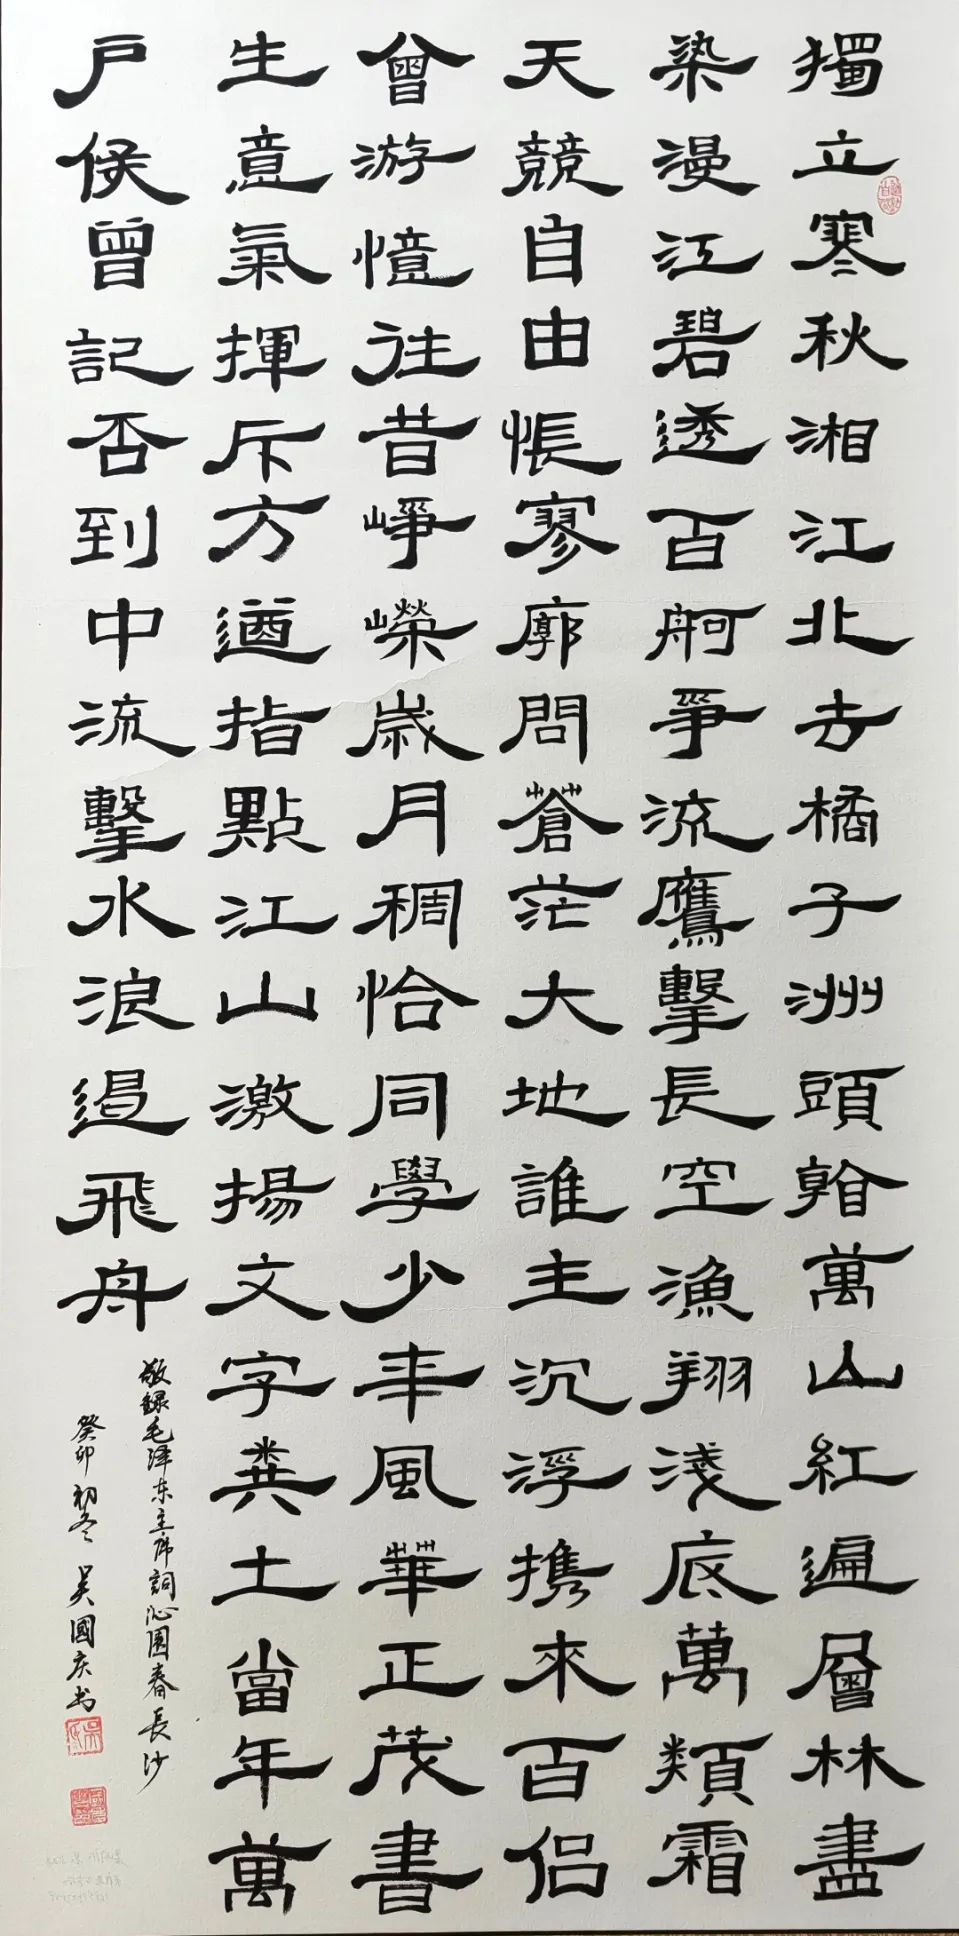 獨立寒秋湘江北去橘子洲頭看萬山紅遍層林盡
染漫江碧透百舸爭流鷹擊長空漁翔淺底萬類霜
天競自由悵寥廓問蒼茫大地誰主沉浮攜來百侶
曾游憶往昔崢嶸歲月稠恰同學少年風華正茂書
生意氣揮斥方遒指點江山激揚文字糞土當年萬
戶侯曾記否到中流擊水浪遏飛舟
敬錄毛泽东主席詞沁園春長沙
癸卯初冬吴國庆书